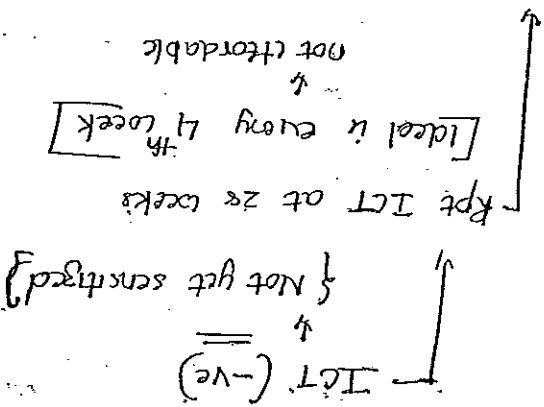 ICT (-ve)
{Not yet sensitized}
Rpt ICT at 28 weeks
[Ideal is every 4th week]
not affordable